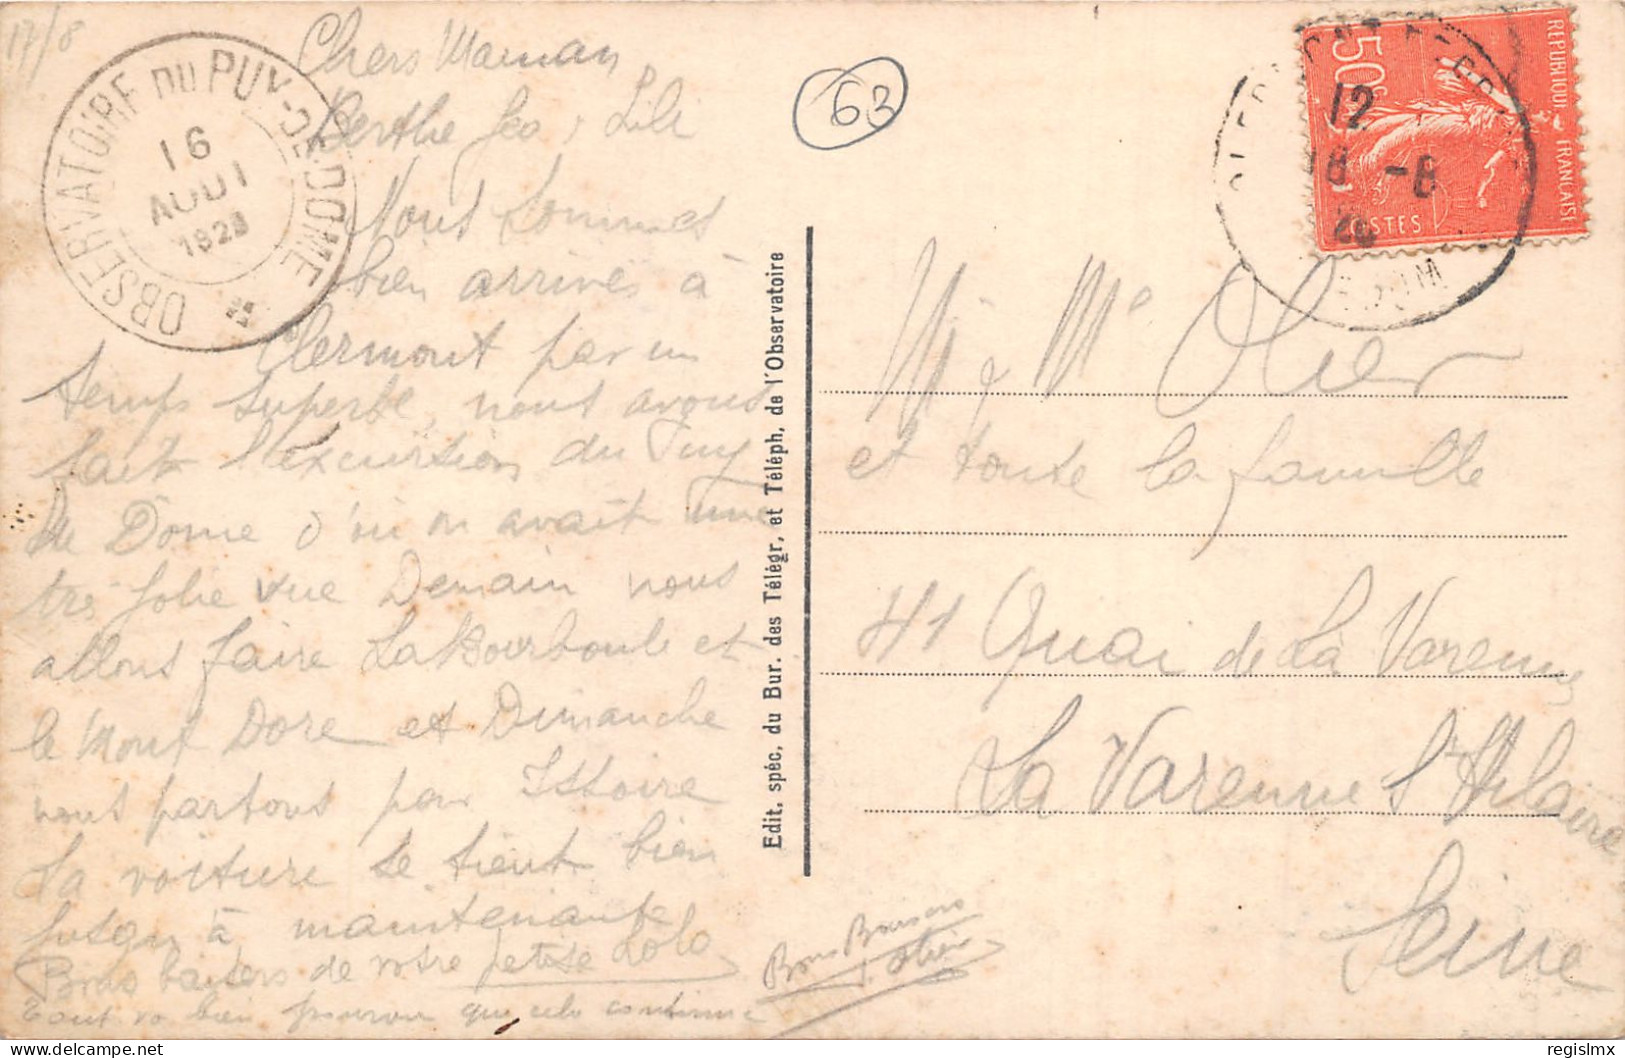 17/8
OBSERVATOIRE DU PUY-DE-DOME
16
AOUT
1928
Chers Maman
Berthe Geo, Lili
Nous sommes
bien arrivés à
Clermont par un
temps superbe, nous avons
fait l'excursion du Puy
de Dome d'ou on avait une
très jolie vue Demain nous
allons faire La Bourboule et
le Mont Dore et Dimanche
nous partons pour Issoire
La voiture se tient bien
jusqu'à maintenante
Bons baisers de votre petite Lolo
Tout va bien pourvu que cela continue
Bons Baisers
Olier
Edit. spéc. du Bur. des Télégr. et Téléph. de l'Observatoire
63
RÉPUBLIQUE FRANCAISE
50c
POSTES
12
18 -8
28
M & Me Olier
et toute la famille
41 Quai de La Varenne
La Varenne St Hilaire
Seine
regislmx